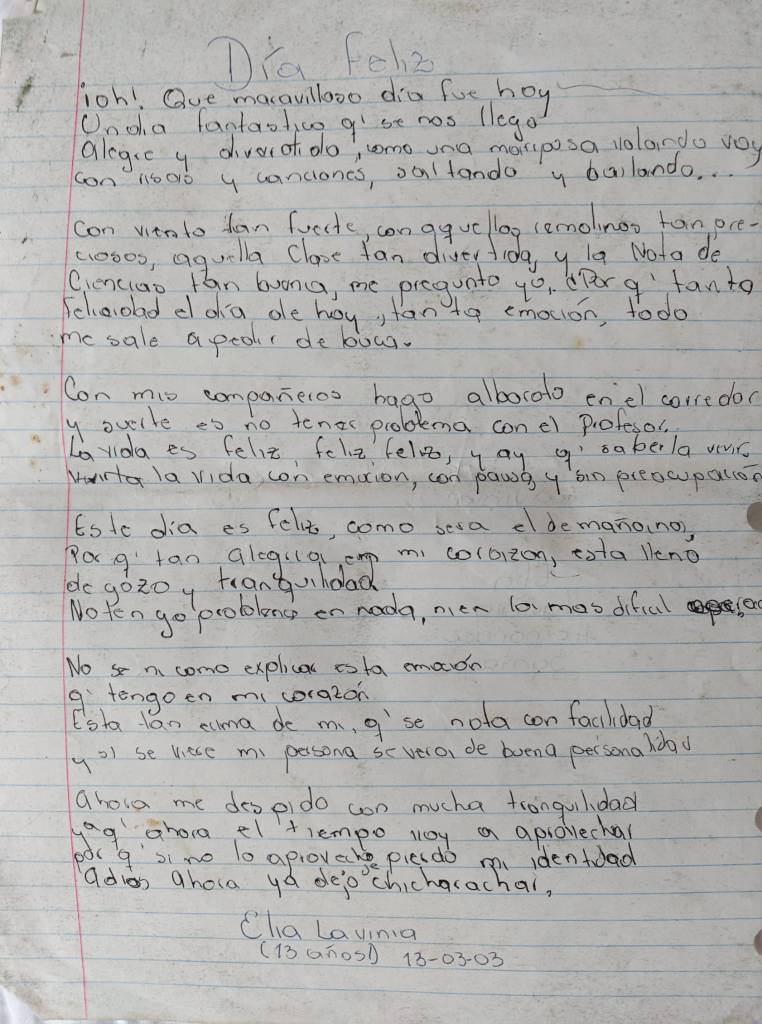 Día feliz
¡oh! Que maravilloso día fue hoy
Un dia fantastico q' se nos llego
alegre y divertido, como una mariposa volando voy
con risas y canciones, saltando y bailando...
Con viento tan fuerte, con aquellos remolinos tan pre-
ciosos, aquella clase tan divertida, y la Nota de
Ciencias tan buena, me pregunto yo, ¿Por q' tanta
felicidad el día de hoy, tan ta emoción, todo
me sale a pedir de boca.
Con mis compañeros hago alboroto en el corredor
y suerte es no tener problema con el Profesor.
La vida es feliz, feliz, feliz, y ay q' saberla vivir,
la vida con emocion, con pausa y sin preocupación
Este día es feliz, como sera el de mañana,
Por q' tan alegria en mi corazon, esta lleno
de gozo y tranquilidad
No tengo problema en nada, ni en la mas dificil
No se ni como explicar esta emoción
q' tengo en mi corazón.
Esta tan encima de mi, q' se nota con facilidad
y si se viese mi persona se vera de buena personalidad
Ahora me despido con mucha tranquilidad
ya q' ahora el tiempo voy a aprovechar
por q' si no lo aprovecho pierdo mi identidad
adios ahora ya dejo de chicharachar,
Elia Lavinia
(13 años) 13-03-03